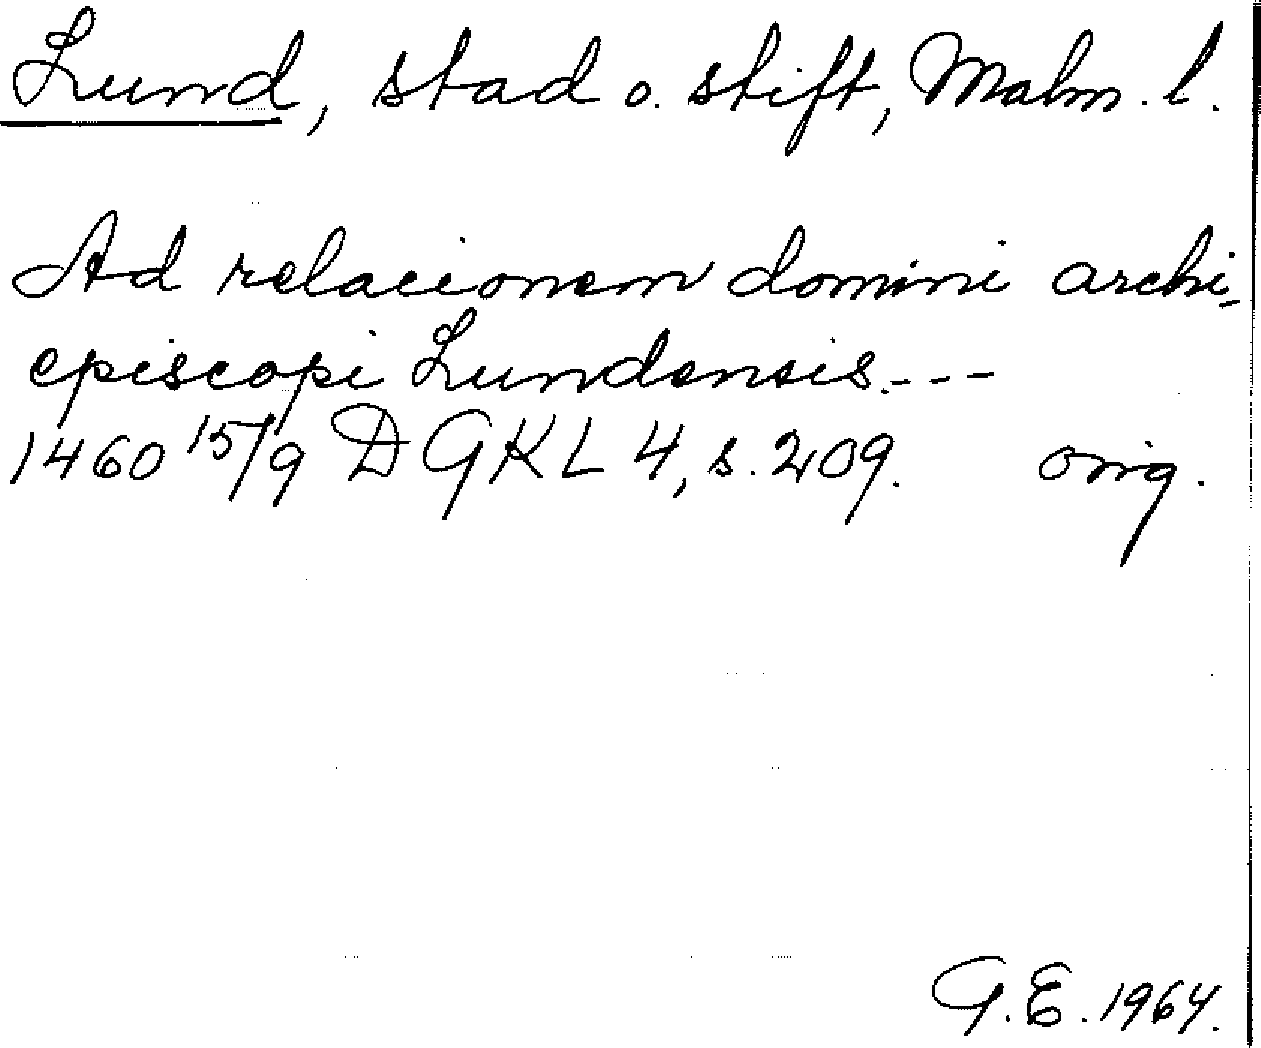 Lund, stad o. stift, Malm. l.
Ad relacionem domini archi-
episcopi Lundensis.---
1460 15/9 DGKL 4, s. 209. orig.
G.E. 1964.